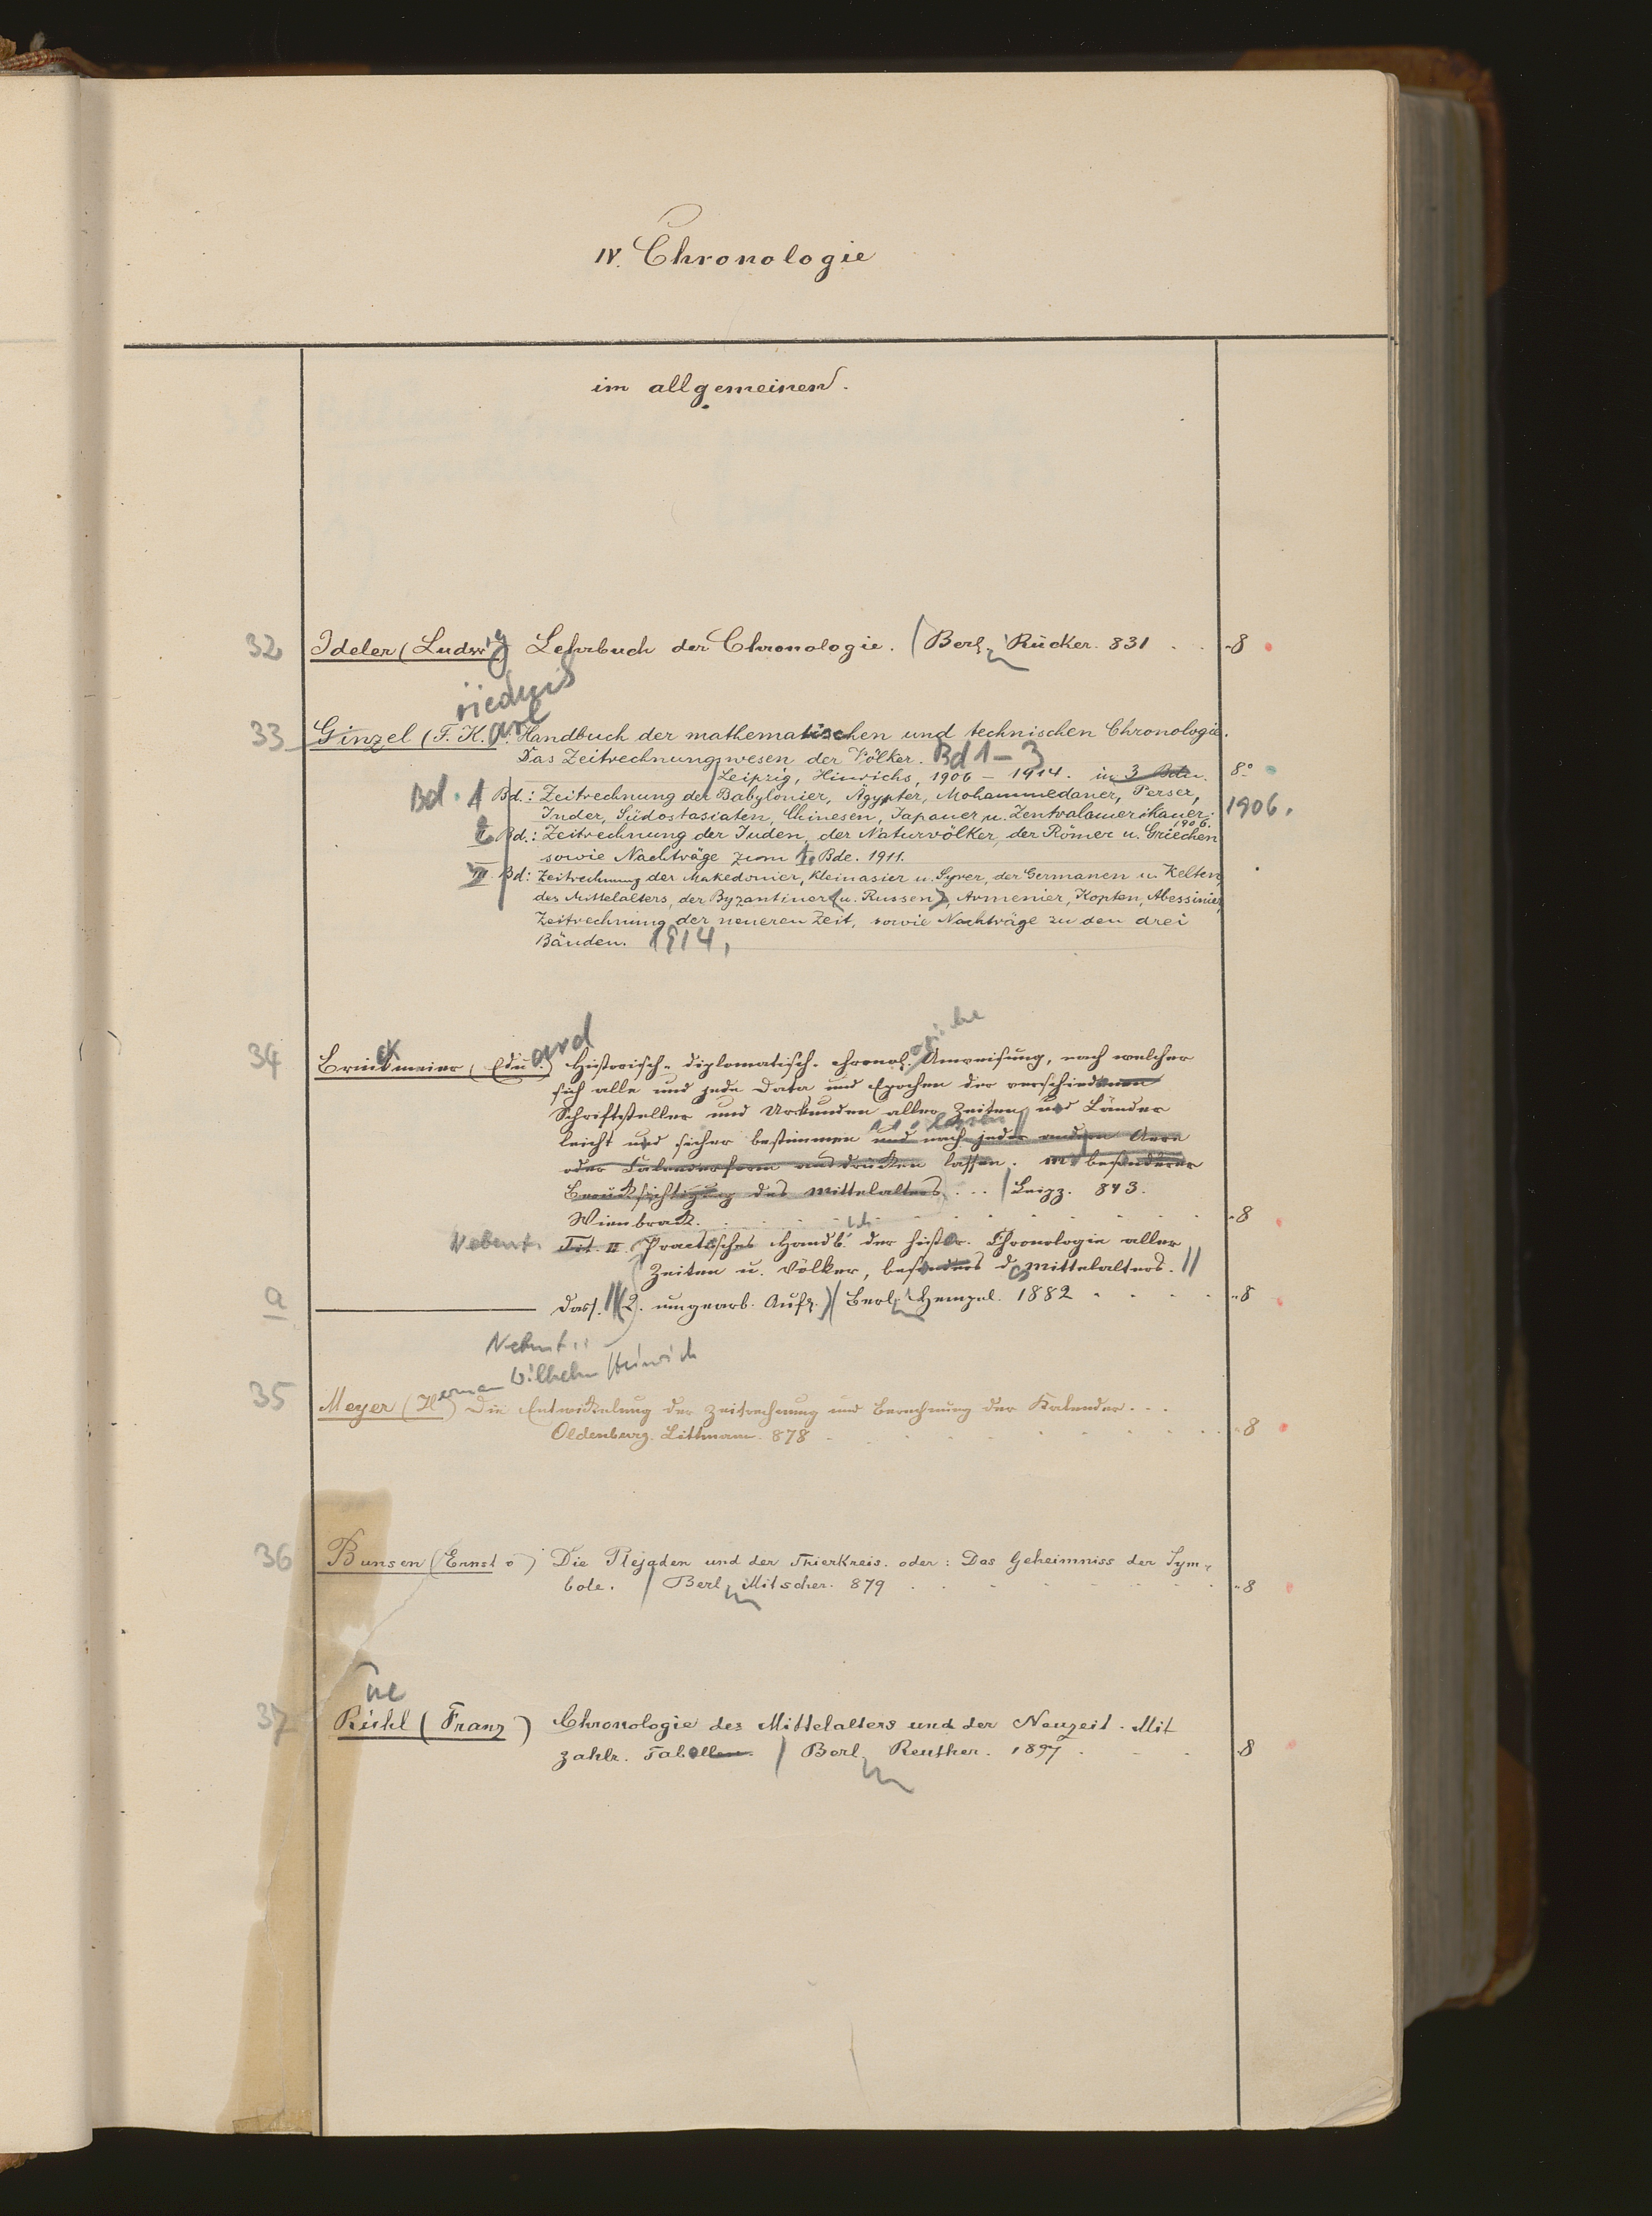 IV. Chronologie
im allgemeinen.
32 Ideler (Ludwig) Lehrbuch der Chronologie. Berl. Rücker. 831 . . 8
riedrich
arl
33 Ginzel (F. K.) Handbuch der mathematischen und technischen Chronologie.
Das Zeitrechnungswesen der Völker. Bd 1-3
Leipzig, Hinrichs, 1906 – 1914. in 3 Bdn. 8°
Bd. 1 Bd.: Zeitrechnung der Babylonier, Ägypter, Mohammedaner, Perser,
Inder, Südostasiaten, Chinesen, Japaner u. Zentralamerikaner. 1906.
1906.
2 Bd.: Zeitrechnung der Juden, der Naturvölker, der Römer u. Griechen
sowie Nachträge zum 1. Bde. 1911.
III Bd: Zeitrechnung der Makedonier, Kleinasier u. Syrer, der Germanen u. Kelten,
des Mittelalters, der Byzantiner (u. Russen), Armenier, Kopten, Abessinier,
Zeitrechnung der neueren Zeit, sowie Nachträge zu den drei
Bänden. 1914,
34 Brinckmeier (Eduard) Historisch-diplomatisch-chronol. Anweisung, nach welcher
sich alle und jede Data und Epochen der verschiedenen
Schriftsteller und Urkunden aller Zeiten und Länder
lassen
leicht und sicher bestimmen und nach jeder andern Aere
oder Kalenderform ausdrücken lassen. mit besonderer
Berücksichtigung des Mittelalters . . . Leipz. 843.
Wienbrack. 8
Nebent. Tit. II. Practisches Handb. der histor. Chronologie aller
Zeiten u. Völker, besonders d. Mittelalters.
a Dass. (2. umgearb. Aufl.) Berl. Hempel. 1882 8
Nebent.:
erman Wilhelm Heinrich
35 Meyer (H.) Die Entwickelung der Zeitrechnung und Berechnung der Kalender . . .
Oldenburg. Littmann. 878 8
36 Bunsen (Ernst v) Die Plejaden und der Thierkreis. oder: Das Geheimniss der Sym-
bole. Berl. Mitscher. 879 8
ue
37 Rühl (Franz) Chronologie des Mittelalters und der Neuzeit. Mit
zahlr. Tabellen. Berl. Reuther. 1897 8